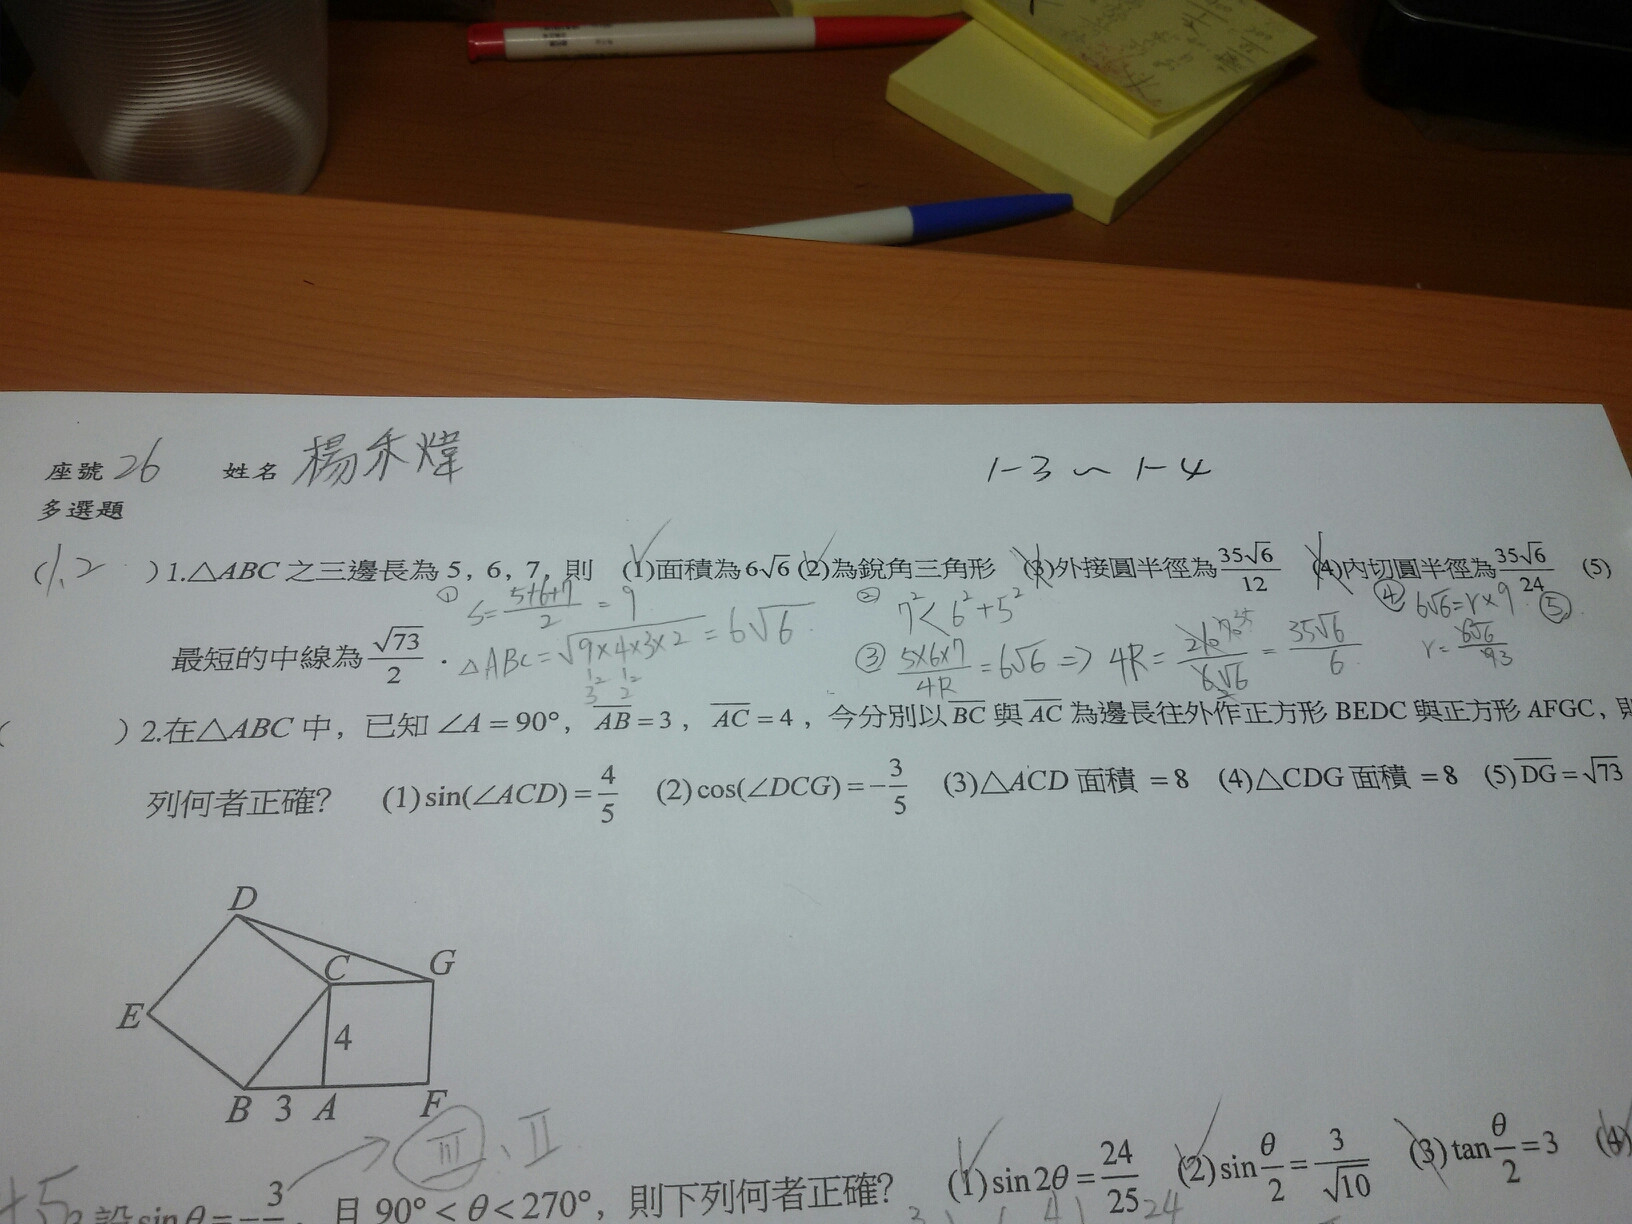 座號 26 姓名 楊禾煒 1-3 ~ 1-4
多選題
(1,2 )1.△ABC 之三邊長為 5, 6, 7, 則 (1)面積為6√6 (2)為銳角三角形 (3)外接圓半徑為35√6/12 (4)內切圓半徑為35√6/24 (5)
① S=5+6+7/2=9 ② 7²<6²+5² ④ 6√6=r×9 ⑤
最短的中線為√73/2.
△ABC=√9×4×3×2=6√6 ③ 5×6×7/4R=6√6 ⇒ 4R= =35√6/6 r=6√6/93
( )2.在△ABC 中, 已知∠A=90°, AB=3, AC=4, 今分別以BC與AC為邊長往外作正方形BEDC與正方形AFGC, 則
列何者正確? (1)sin(∠ACD)=4/5 (2)cos(∠DCG)=-3/5 (3)△ACD面積=8 (4)△CDG面積=8 (5)DG=√73
D
C
G
E
4
B 3 A F
Ⅲ、Ⅱ
設sinθ=-3/, 且90°<θ<270°, 則下列何者正確? (1)sin2θ=24/25 (2)sinθ/2=3/√10 (3)tanθ/2=3 (4)
24